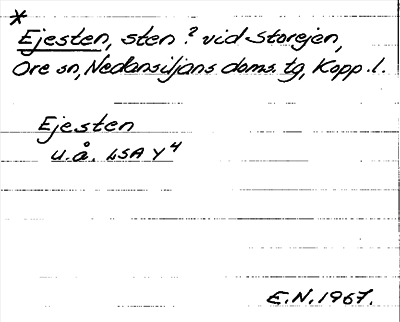 *
Ejesten, sten? vid Storejen,
Ore sn, Nedansiljans doms. tg, Kopp. l.
Ejesten
u.å. LSA Y4
E.N. 1967.